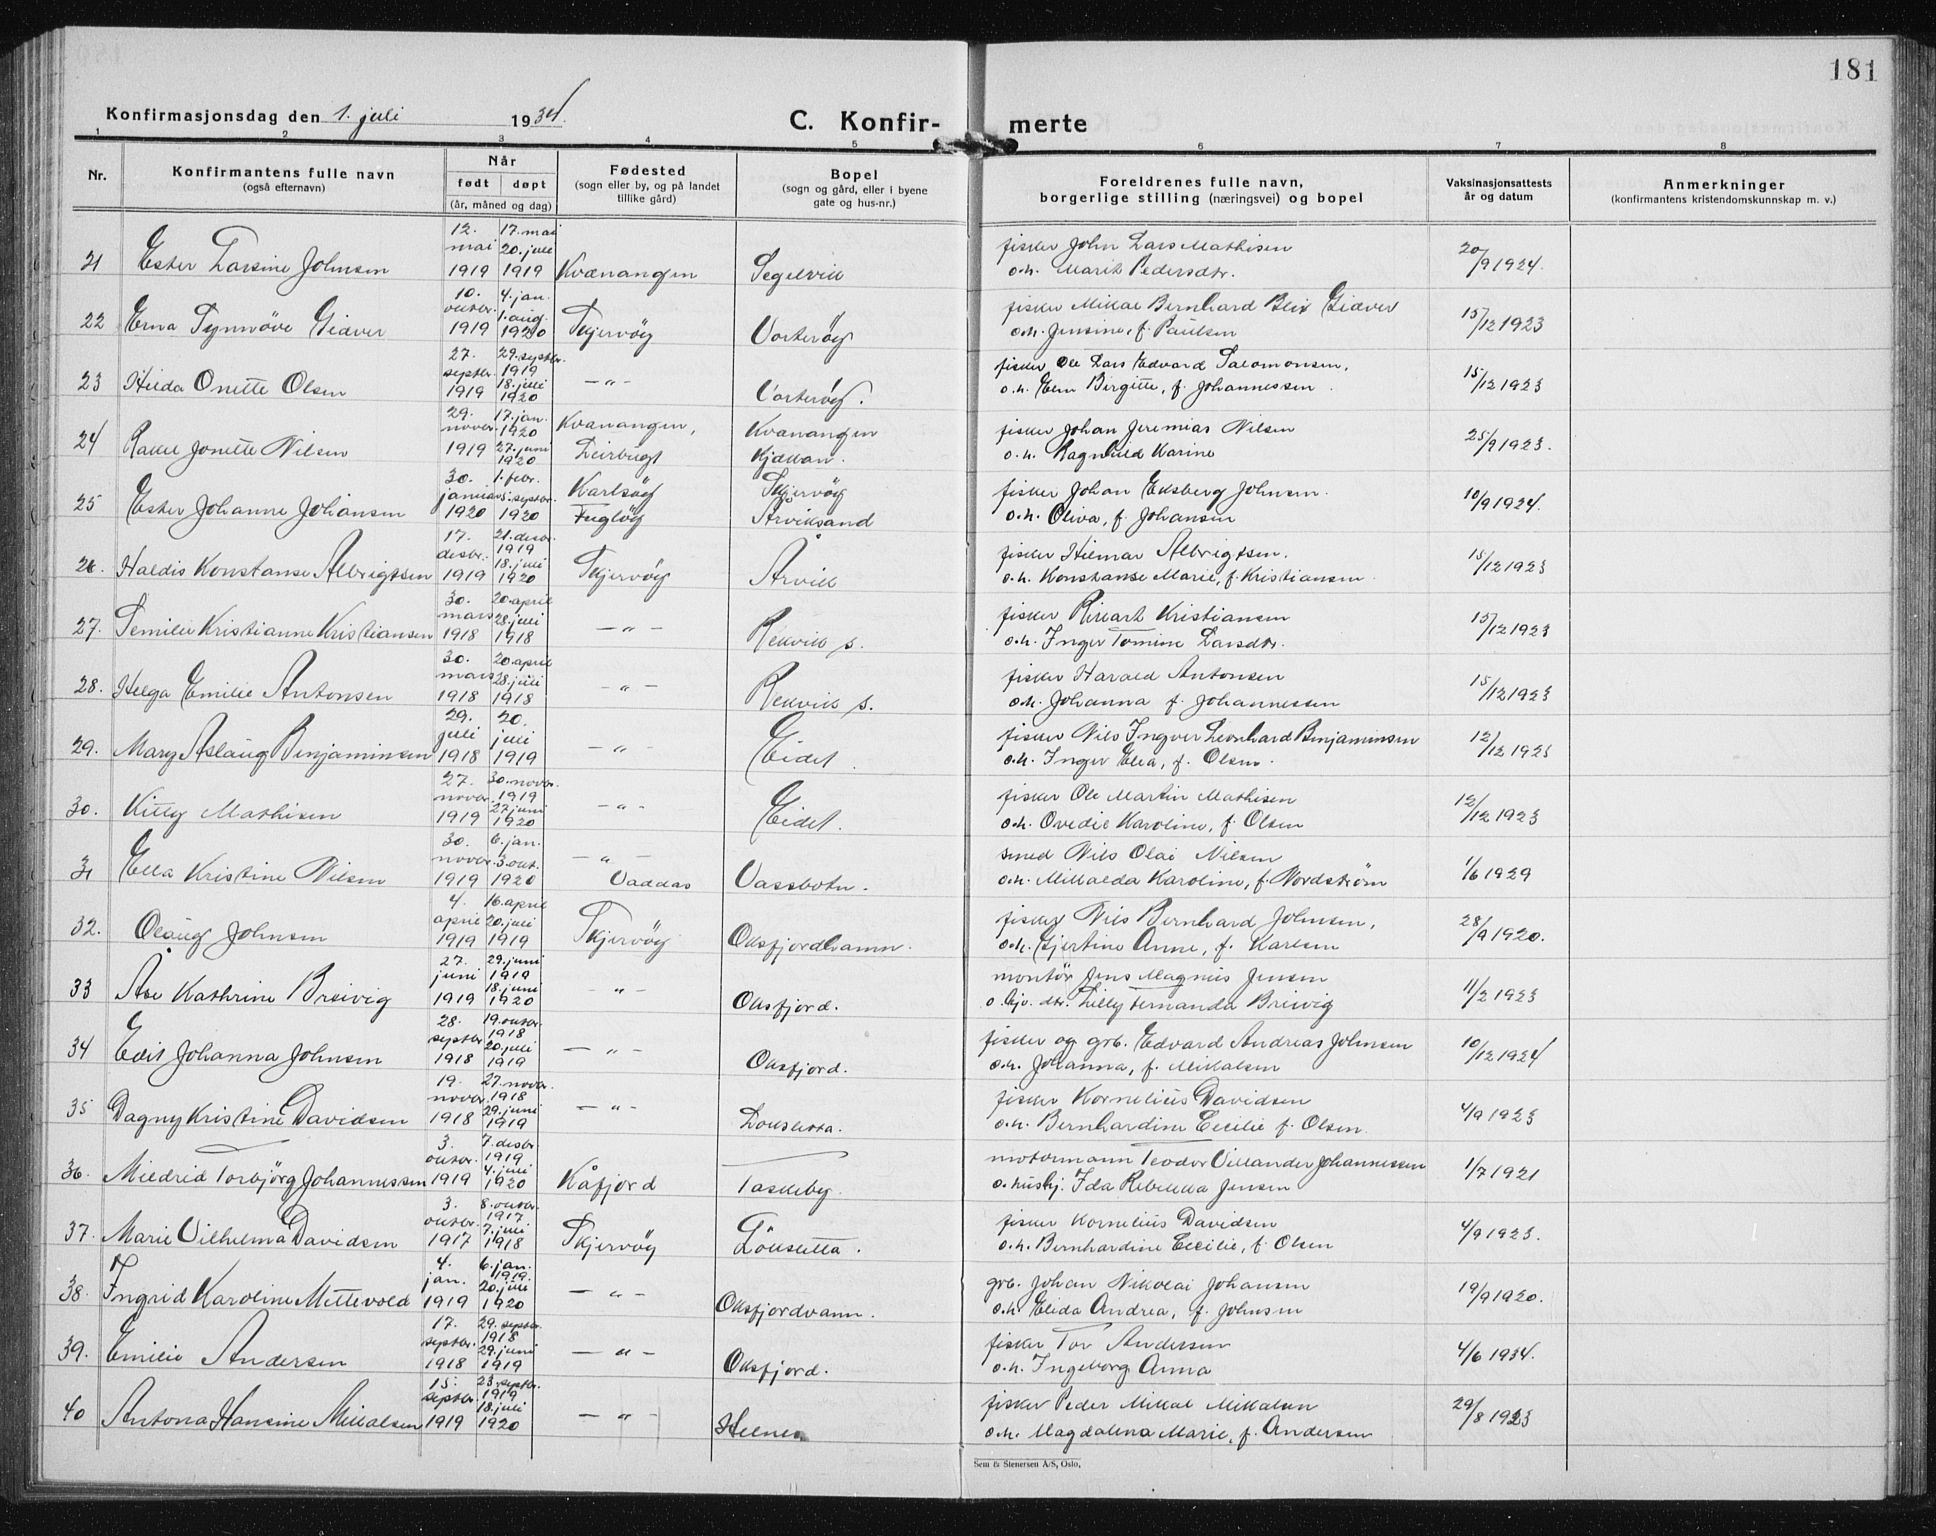 181
Konfirmasjonsdag den 1. juli 1934.
C. Konfir- merte
1 2 3 4 5 6 7 8
Nr. Konfirmantens fulle navn (også efternavn) Når født døpt (år, måned og dag) Fødested (sogn eller by, og på landet tillike gård) Bopel (sogn og gård, eller i byene gate og hus-nr.) Foreldrenes fulle navn, borgerlige stilling (næringsvei) og bopel Vaksinasjonsattests år og datum Anmerkninger (konfirmantens kristendomskunnskap m. v.)
21 Ester Larsine Johnsen 12. mai 1919 17. mai 20. juli 1919 Kvænangen Segelvik fisker John Lars Mathisen o.h. Marit Pedersdtr. 20/9 1924.
22 Erna Synnöve Giæver 10. oktbr. 1919 4. jan. 1. aug. 1920 Skjervöy Vorteröy fisker Mikal Bernhard Blix Giæver o.h. Jensine, f. Paulsen 15/12 1923
23 Hilda Onette Olsen 27. septbr. 1919 29. septbr. 1919 18. juli 1920 — " — Vorteröy. fisker Ole Lars Edvard Salomonsen, o.h. Elen Birgitte, f. Johannessen. 15/12 1923
24 Rakel Jonette Nilsen 29. novbr. 1919 17. jan. 1920 27. juni 1920 Kvænangen, Kvænangen Kjækan. fisker Johan Jeremias Nilsen o.h. Ragnhild Karine 25/9 1923.
25 Ester Johanne Johansen 30. januar 1920 1. febr. 5. septbr. 1920 Karlsöy Fuglöy Skjervöy Årviksand fisker Johan Eksberg Johnsen. o.h. Oliva, f. Johansen 10/9 1924.
26. Haldis Konstanse Albrigtsen 17. desbr. 1919 21. desbr. 1919 18. juli 1920 Skjervöy Årvik fisker Hilmar Albrigtsen. o.h. Konstanse Marie, f. Kristiansen. 15/12 1923
27. Semilie Kristianne Kristiansen 30. mars 1918 20. april 28. juli 1918 — " — Rekvik s. fisker Rikart Kristiansen o.h. Inger Tomine Larsdtr. 15/12 1923
28. Helga Emilie Antonsen 30. mars 1918 20. april 28. juli 1918 — " — Rekvik s. fisker Harald Antonsen o.h. Johanna f. Johannessen 15/12 1923
29. Mary Aslaug Benjaminsen 29. juli 1918 20. juli 1919 — " — Eidet. fisker Nils Ingver Leonhard Benjaminsen o.h. Inger Elea, f. Olsen. 12/12 1923
30. Kitty Mathisen 27. novbr. 1919 30. novbr. 1919 27. juni 1920 — " — Eidet. fisker Ole Martin Mathisen o.h. Ovedie Karoline, f. Olsen 12/12 1923
31 Ella Kristine Nilsen 30. novbr. 1919 6. jan. 3. okt. 1920 — " — Vaddas Vassbotn. smed Nils Olai Nilsen o.h. Mikkalda Karoline, f. Nordström 1/6 1929
32. Olaug Johnsen 4. april 1919 16. april 20. juli 1919 Skjervöy Oksfjordhamn. fisker Nils Bernhard Johnsen, o.h. Hjertine Anne, f. Karlsen 28/9 1920.
33 Åse Kathrine Breivig 27. juni 1919 29. juni 1919 18. juni 1920 — " — Oksfjord. montör Jens Magnus Jensen o. hjv. dtr. Lilly Fernanda Breivig 11/2 1923
34 Edit Johanna Johnsen 28. septbr. 1918 19. oktbr. 1918 20. juli 1919 — " — Oksfjord. fisker og grb. Edvard Andreas Johnsen o.h. Johanna, f. Mikalsen 10/12 1924
35 Dagny Kristine Davidsen 19. novbr. 1918 27. novbr. 1918 29. juni 1919 — " — fisker Kornelius Davidsen o.h. Bernhardine Cecilie f. Olsen. 4/9 1923
36. Mildrid Torbjörg Johannessen 3. oktbr. 1919 7. desbr. 1919 4. juli 1920 Kåfjord Taskeby. motormann Teodor Villander Johannessen o. hushj. Ida Rebekka Jensen 1/7 1921
37. Marie Vilhelma Davidsen 3. oktbr. 1917 8. oktbr. 1917 7. juli 1918 Skjervöy Löksletta. fisker Kornelius Davidsen o.h. Bernhardine Cecilie, f. Olsen 4/9 1923.
38. Ingrid Karoline Mittevold 4. jan. 1919 6. jan. 1919. 20. juli 1920 — " — Oksfjordvann. grb. Johan Nikolai Johansen o.h. Elida Andrea, f. Johnsen 19/9 1920.
39. Emilie Andersen 17. septbr. 1918 29. septbr. 1918 29. juni 1919 — " — Oksfjord. fisker Tor Andersen o.h. Ingeborg Anna 4/6 1934.
40 Antona Hansine Mikkalsen 15. septbr. 1919 23. septbr. 1919 18. juli 1920 — " — Helnes fisker Peder Mikal Mikalsen o.h. Magdalena Marie, f. Andersen 29/8 1923
Sem & Stenersen A/S, Oslo.